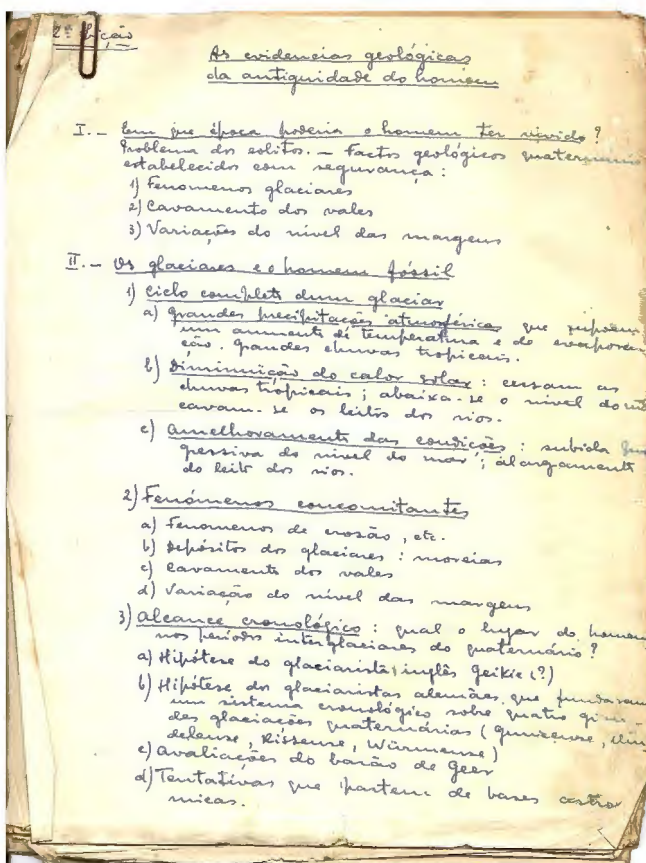 2ª Lição
As evidencias geológicas
da antiguidade do homem
I. — Em que época poderia o homem ter vivido?
Problema dos eolitos. — Factos geológicos quaternários
estabelecidos com segurança:
1) Fenomenos glaciares
2) Cavamento dos vales
3) Variações do nivel das margens
II. — Os glaciares e o homem fóssil
1) Ciclo completo dum glaciar
a) Grandes precipitações atmosféricas que supõem
um aumento de temperatura e de evapora
ção. Grandes chuvas tropicais.
b) Diminuição do calor solar: cessam as
chuvas tropicais; abaixa-se o nivel do
cavam-se os leitos dos rios.
c) Amelhoramento das condições: subida
gressiva do nivel do mar; alargamento
do leito dos rios.
2) Fenómenos concomitantes
a) Fenomenos de erosão, etc.
b) Depósitos dos glaciares: moreias
c) Cavamento dos vales
d) Variação do nivel das margens
3) Alcance cronológico: qual o lugar do homem
nos períodos interglaciares do quaternário?
a) Hipótese do glaciarista inglês Geikie (?)
b) Hipótese dos glaciaristas alemães que fundaram
um sistema cronológico sobre quatro gran-
des glaciações quaternárias (Gunzense,
delense, Rissense, Würmense)
c) Avaliações do barão de Geer
d) Tentativas que partem de bases astro
micas.